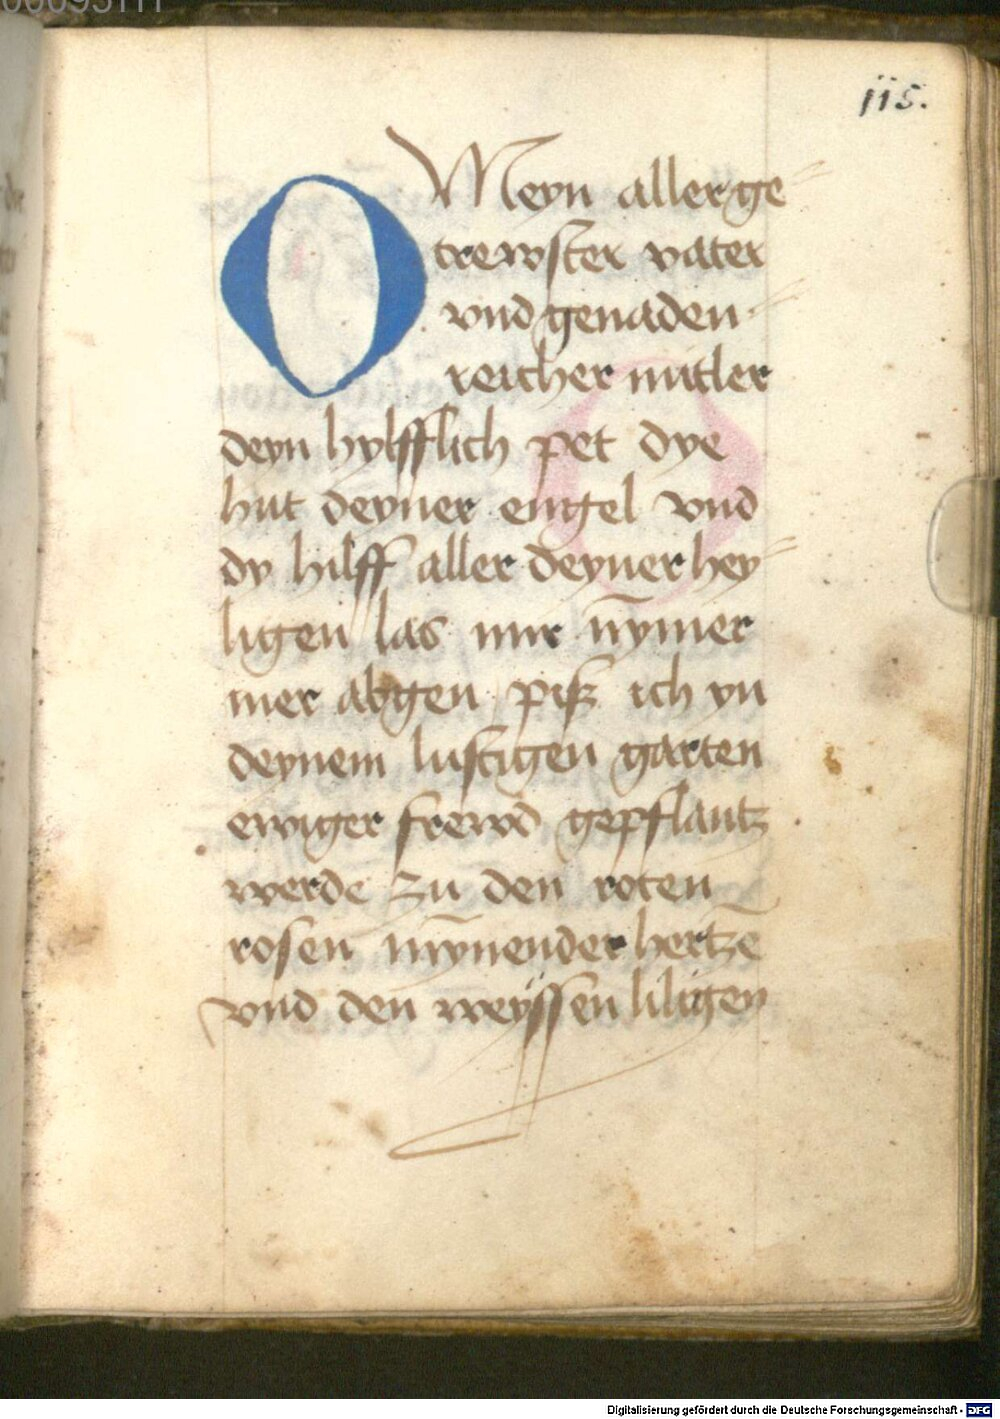 115.
O Meyn allerge=
trewster vater
vnd genaden=
reicher mitler
deyn hylfflich pet dye
hut deyner engel vnd
dy hilff aller deyner hey=
ligen las mir nȳmer
mer abgen piß ich yn
deynem lustigen garten
ewiger frewd gepflantz
werde zu den roten
rosen mȳnender hertzē
vnd den weyssen liligen
Digitalisierung gefördert durch die Deutsche Forschungsgemeinschaft - DFG